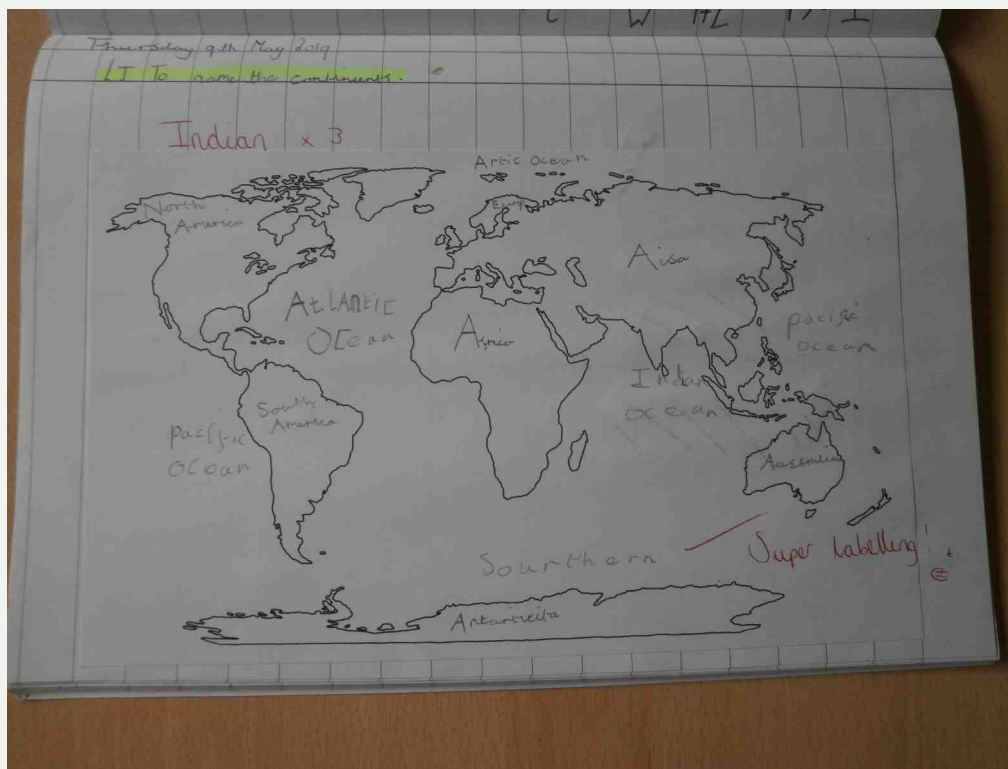 Thursday 9th May 2019
LI To name the continents.
Indian x 3
Artic Ocean
North
America
Europ
Aisa
AtLANtic
OCean
Africa
pacific
ocean
Indian
ocean
South
America
pacific
ocean
Australia
Sourthern
Super labelling!
Antarticita